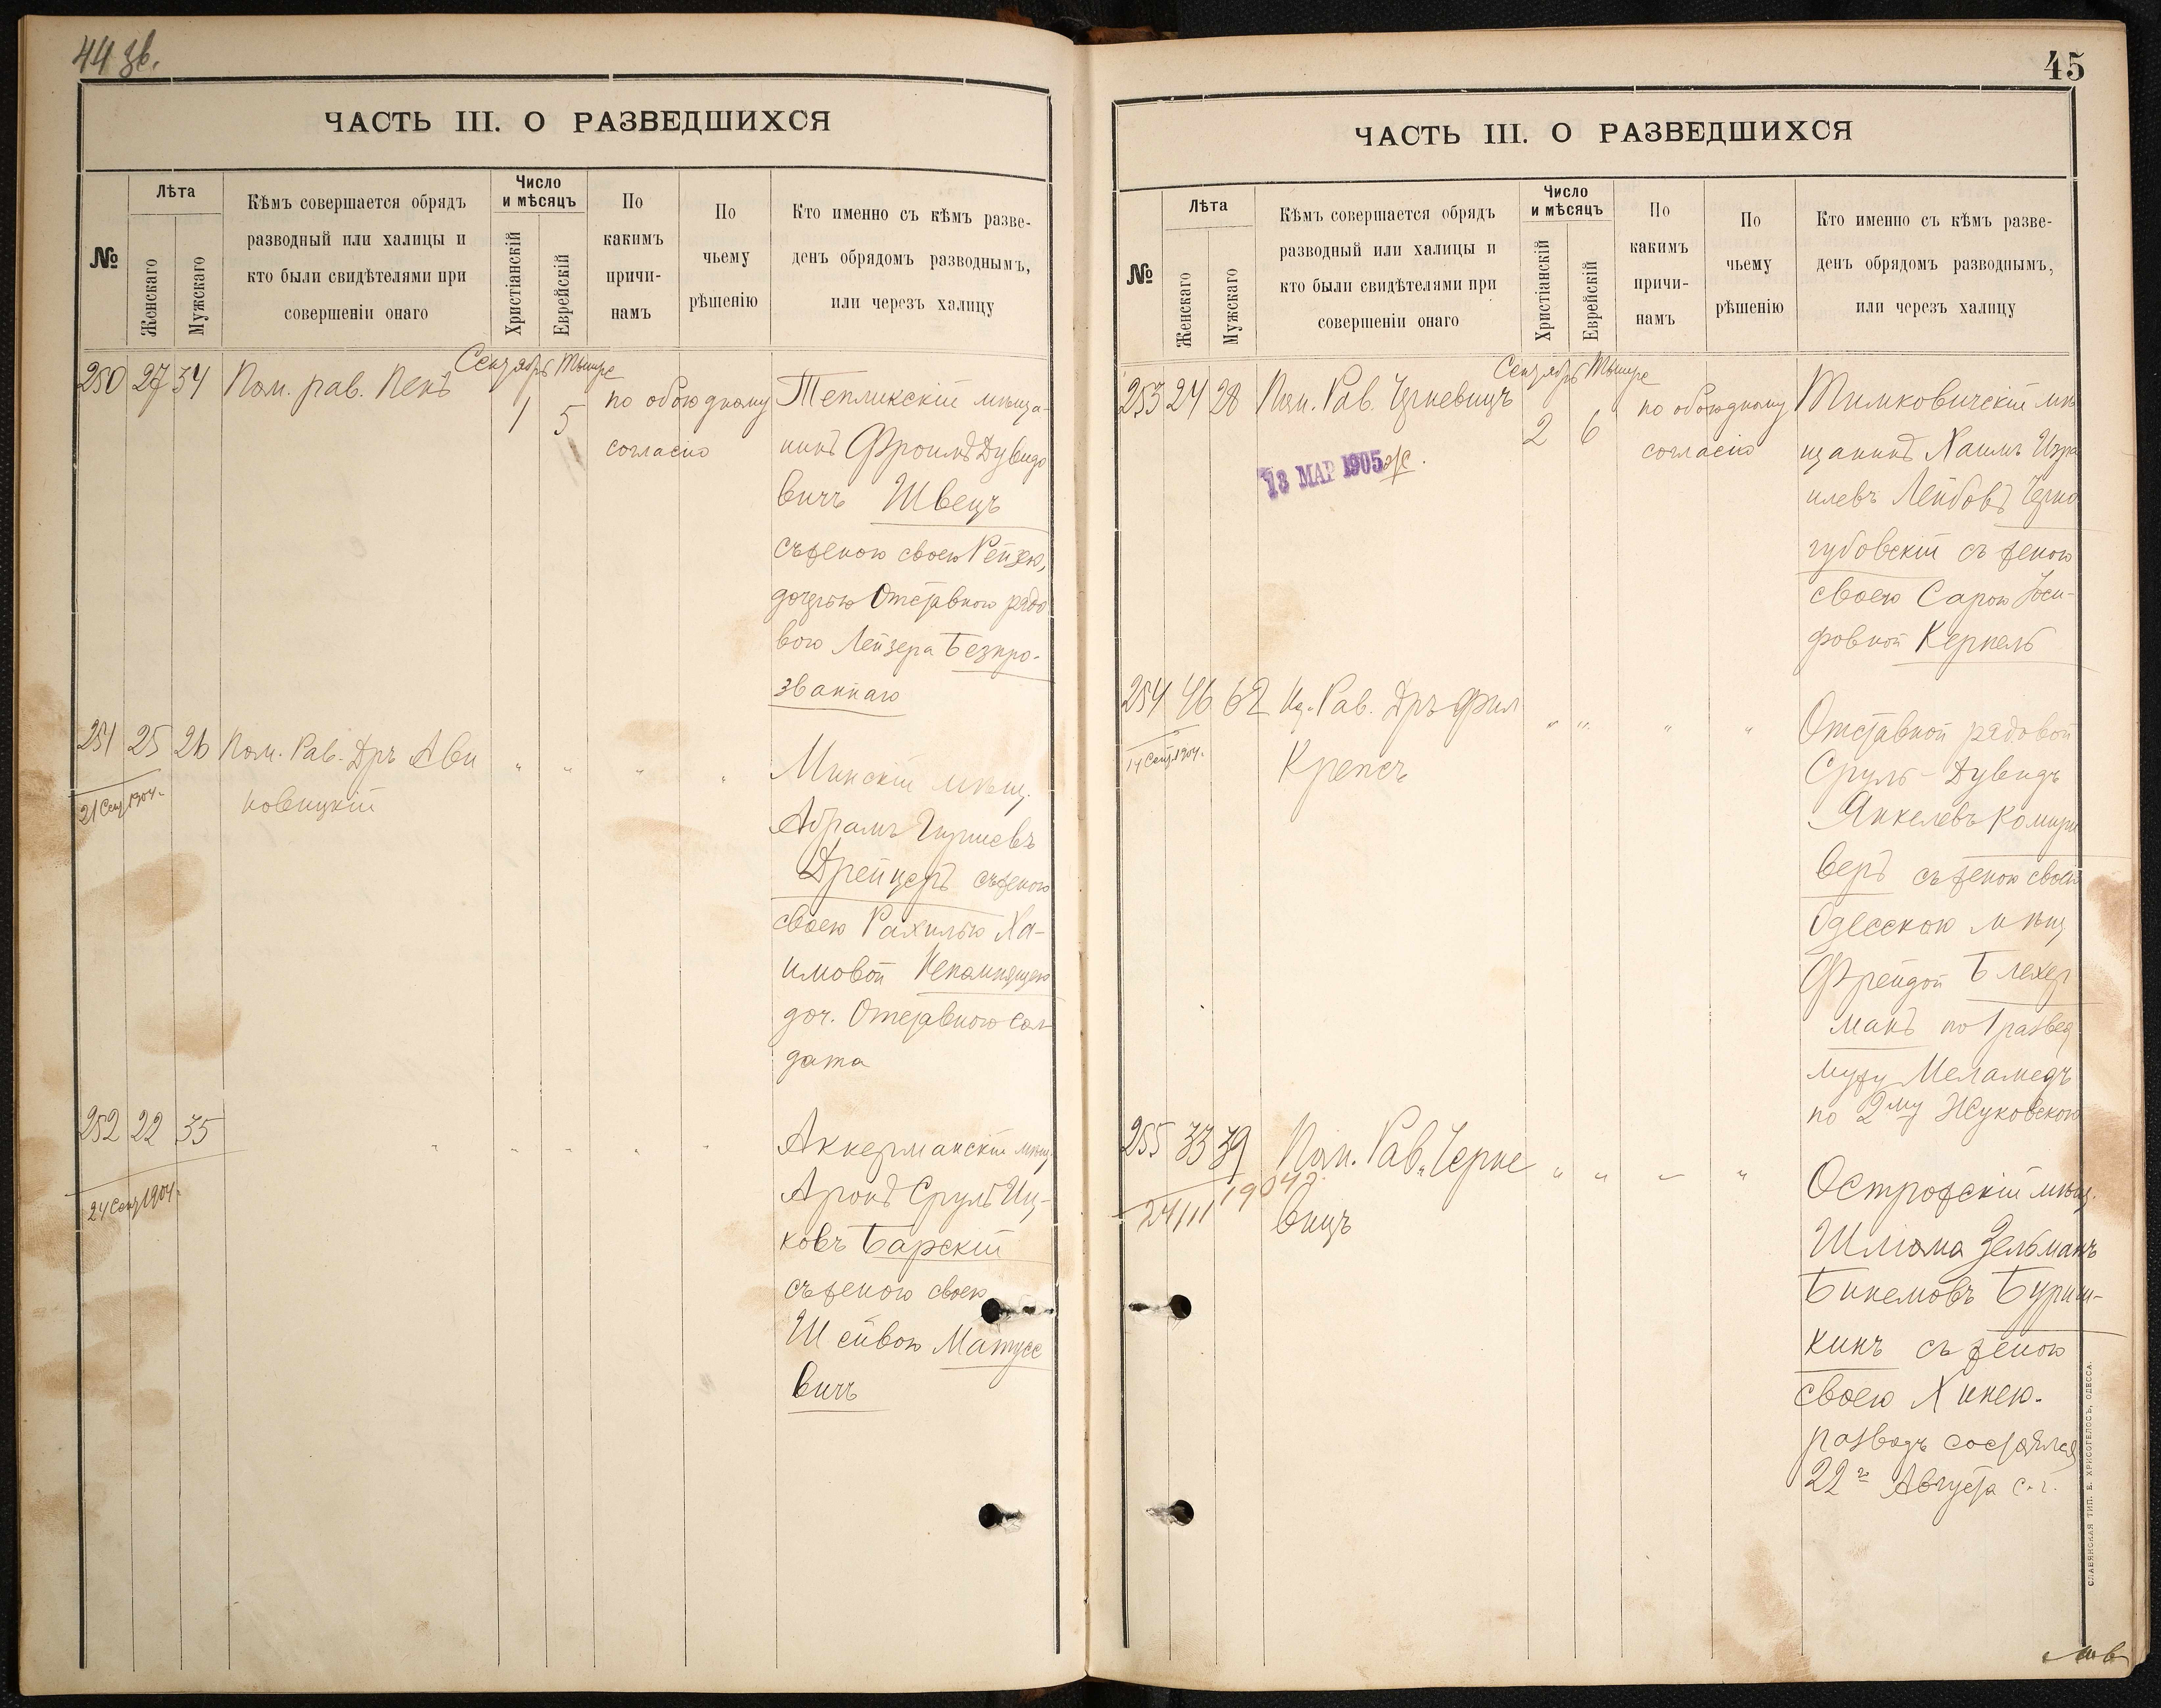 44 зв.
ЧАСТЬ III. О РАЗВЕДШИХСЯ
№
Лѣта
Женскаго
Мужскаго
Кѣмъ совершается обрядъ
разводный или халицы и
кто были свидѣтелями при
совершеніи онаго
Число
и мѣсяцъ
Христіанскій
Еврейскій
По
какимъ
причи-
намъ
По
чьему
рѣшенію
Кто именно съ кѣмъ разве-
денъ обрядомъ разводнымъ,
или черезъ халицу
Сентябрь Тышре
250 27 34 Пом. рав. Пекъ 1 5 по обоюдному
согласію
Тепликскій мѣща-
нинъ Фроимъ Дувидо
вичъ Швецъ
съ женою своею Рейзею,
дочерью Отставного рядо
вого Лейзера Безпро-
званнаго
251 25 26 Пом. Рав. Дръ Ави
новицкій
21 Сент 1904.
" " " "
Минскій мѣщ.
Абрамъ Гиршевъ
Дрейцеръ съ женою
своею Рахилью Ха-
имовой Непомнящею
доч. Отставного сол-
дата
252 22 35 " " " " "
24 Сент 1904.
Аккерманскій мѣщ.
Аронъ Сруль Иц-
ковъ Барскій
съ женою своею
Шейвою Матусе
вичъ
45
ЧАСТЬ III. О РАЗВЕДШИХСЯ
№
Лѣта
Женскаго
Мужскаго
Кѣмъ совершается обрядъ
разводный или халицы и
кто были свидѣтелями при
совершеніи онаго
Число
и мѣсяцъ
Христіанскій
Еврейскій
По
какимъ
причи-
намъ
По
чьему
рѣшенію
Кто именно съ кѣмъ разве-
денъ обрядомъ разводнымъ,
или черезъ халицу
Сентябрь Тышре
253 24 28 Пом. Рав. Черневицъ 2 6 по обоюдному
согласію
13 МАР 1905 ж.
Тимковичскій мѣ
щанинъ Хаимъ Изра
илевъ Лейбовъ Черно
губовскій съ женою
своею Сарою Іоси-
фовной Керпель
254 46 62 Од. Рав. Дръ Фил
Крепсъ
14 Сент. 1904.
" " " "
Отставной рядовой
Сруль-Дувидъ
Янкелевъ Комири
веръ съ женою своею
Одесскою мѣщ
Фрейдой Блехер
манъ по 1 развед.
мужу Меламедъ
по 2му Жуковскою
255 33 39 Пом. Рав. Черне
вицъ
24/III 1904 г.
" " " "
Острожскій мѣщ.
Шліома Зельманъ
Бинемовъ Буриш-
кинъ съ женою
своею Хинею.
разводъ состоялся
22г Августа с.г.
СЛАВЯНСКАЯ ТИП. Е. ХРИСОГЕЛОСЪ, ОДЕССА.